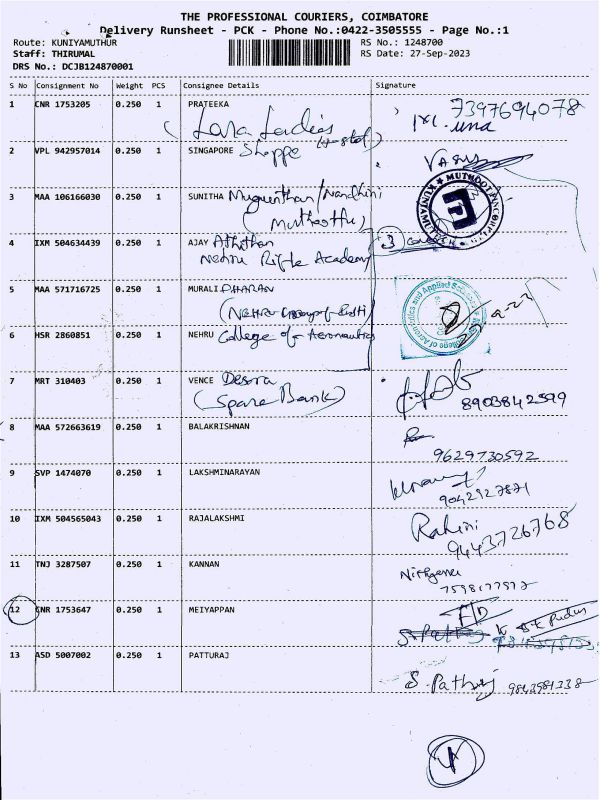 THE PROFESSIONAL COURIERS, COIMBATORE
Delivery Runsheet - PCK - Phone No.:0422-3505555 - Page No.:1
Route: KUNIYAMUTHUR RS No.: 1248700
Staff: THIRUMAL RS Date: 27-Sep-2023
DRS No.: DCJB124870001
S No Consignment No Weight PCS Consignee Details Signature
1 CNR 1753205 0.250 1 PRATEEKA 7397694078
(Lara Ladies Hostel)
2 VPL 942957014 0.250 1 SINGAPORE Shoppe
3 MAA 106166030 0.250 1 SUNITHA Mugunthan/Nandhini
(Muthoottu)
4 IXM 504634439 0.250 1 AJAY Athithan
Nehru Rifle Academy
5 MAA 571716725 0.250 1 MURALI DHARAN
6 HSR 2860851 0.250 1 NEHRU College of Aeronautics
7 MRT 310403 0.250 1 VENCE Desora
(Spare Bank) 8903842599
8 MAA 572663619 0.250 1 BALAKRISHNAN
9629730592
9 SVP 1474070 0.250 1 LAKSHMINARAYAN
9042927871
10 IXM 504565043 0.250 1 RAJALAKSHMI Rahini
9443726768
11 TNJ 3287507 0.250 1 KANNAN
12 CNR 1753647 0.250 1 MEIYAPPAN
13 ASD 5007002 0.250 1 PATTURAJ
S. Pathuraj 9842981338